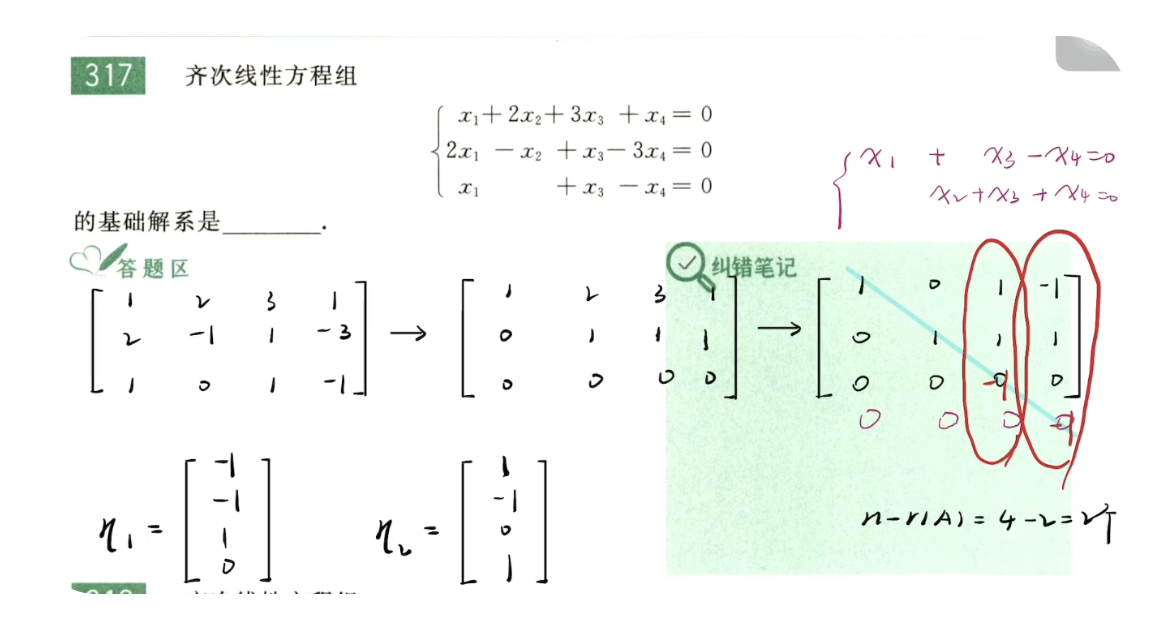 317 齐次线性方程组
x₁+ 2x₂+ 3x₃ + x₄ = 0
2x₁ − x₂ + x₃− 3x₄ = 0
x₁ + x₃ − x₄ = 0
x₁ + x₃ − x₄ = 0
x₂ + x₃ + x₄ = 0
的基础解系是________.
答题区
纠错笔记
1 2 3 1
2 -1 1 -3
1 0 1 -1
→
1 2 3 1
0 1 1 1
0 0 0 0
→
1 0 1 -1
0 1 1 1
0 0 0 0
0 0 0 0
-1
-1
η₁ =
-1
-1
1
0
η₂ =
1
-1
0
1
n-r(A) = 4-2 = 2个